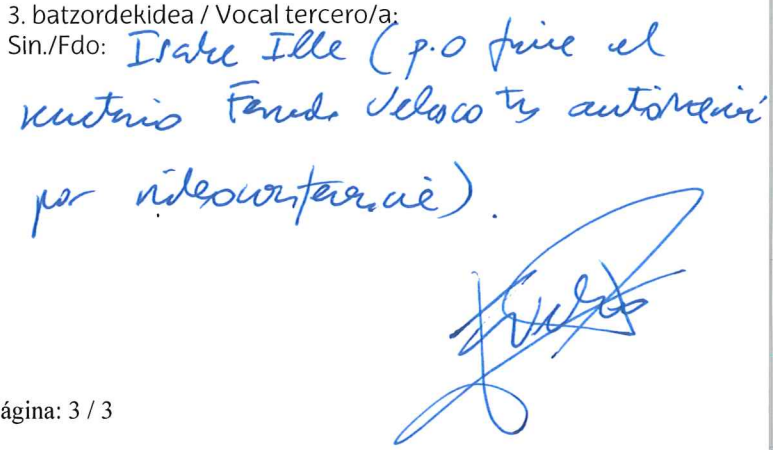 3. batzordekidea / Vocal tercero/a:
Sin./Fdo: Isake Ille (p.o firma el
secretario Fernando Velasco tras autorización
por videoconferencia).
ágina: 3 / 3